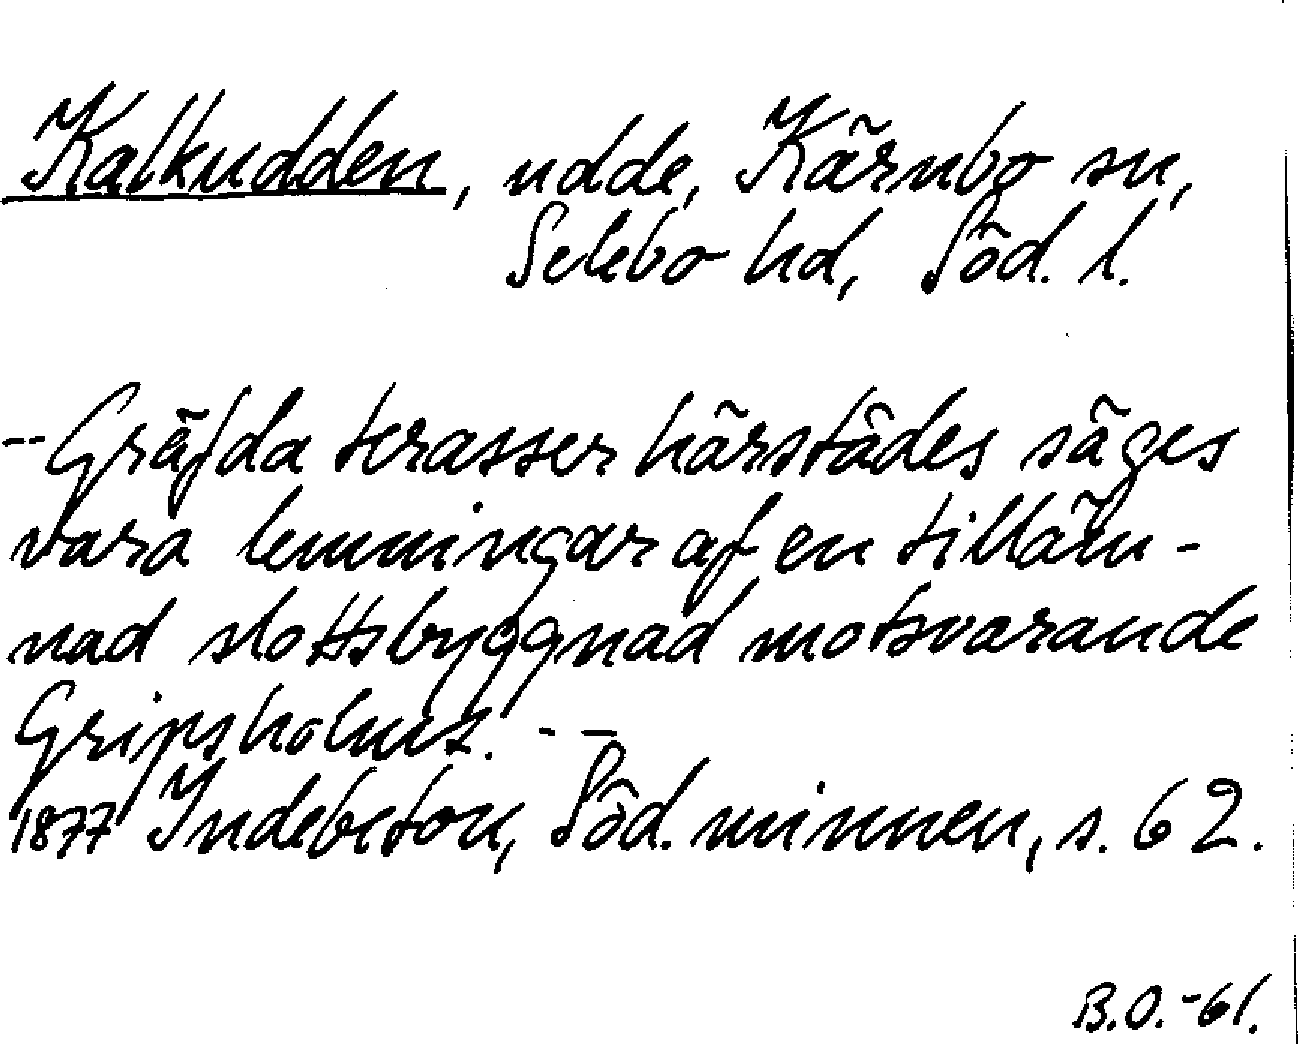 Kalkudden, udde, Kärnbo sn,
Selebo hd, Söd. l.
-- Gräfda terasser härstädes säges
vara lemningar af en tilläm-
nad slottsbyggnad motsvarande
Gripsholms. - -
1877 Indebetou, Söd. minnen, s. 62.
B.O.-61.